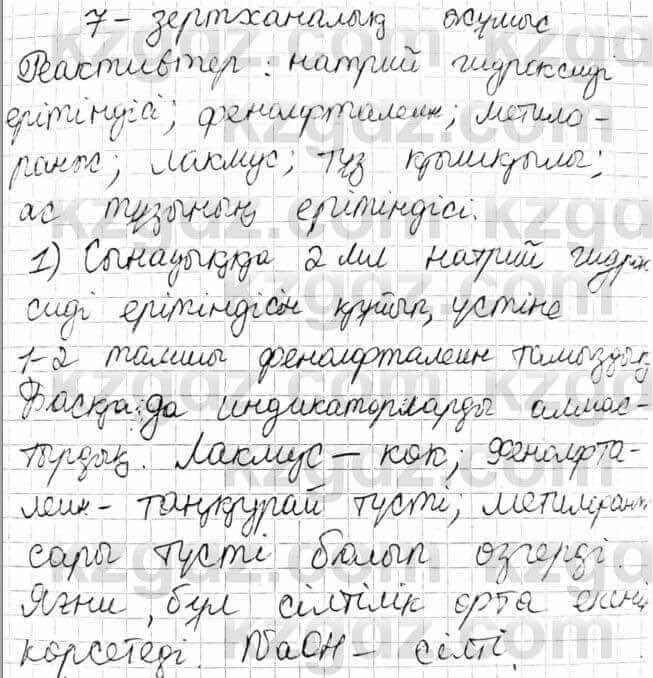 7 - зертханалық жұмыс
Реактивтер: натрий гидроксиді
ерітіндісі; фенолфталеин; метило-
ранж; лакмус; тұз қышқылы;
ас тұзының ерітіндісі.
1) Сынауыққа 2 мл натрий гидрок
сиді ерітіндісін құйып, үстіне
1-2 тамшы фенолфталеин тамыздық
Басқа да индикаторларды алмас-
тырдық. Лакмус - көк; Фенолфта-
леин - таңқурай түсті; метилоранж
сары түсті болып өзгерді.
Яғни, бұл сілтілік орта екенін
көрсетеді. NaOH - сілті.
kzgdz.com